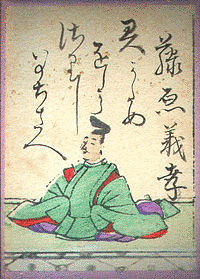 藤原義孝
君かため
をしか
らさりし
いのちさへ